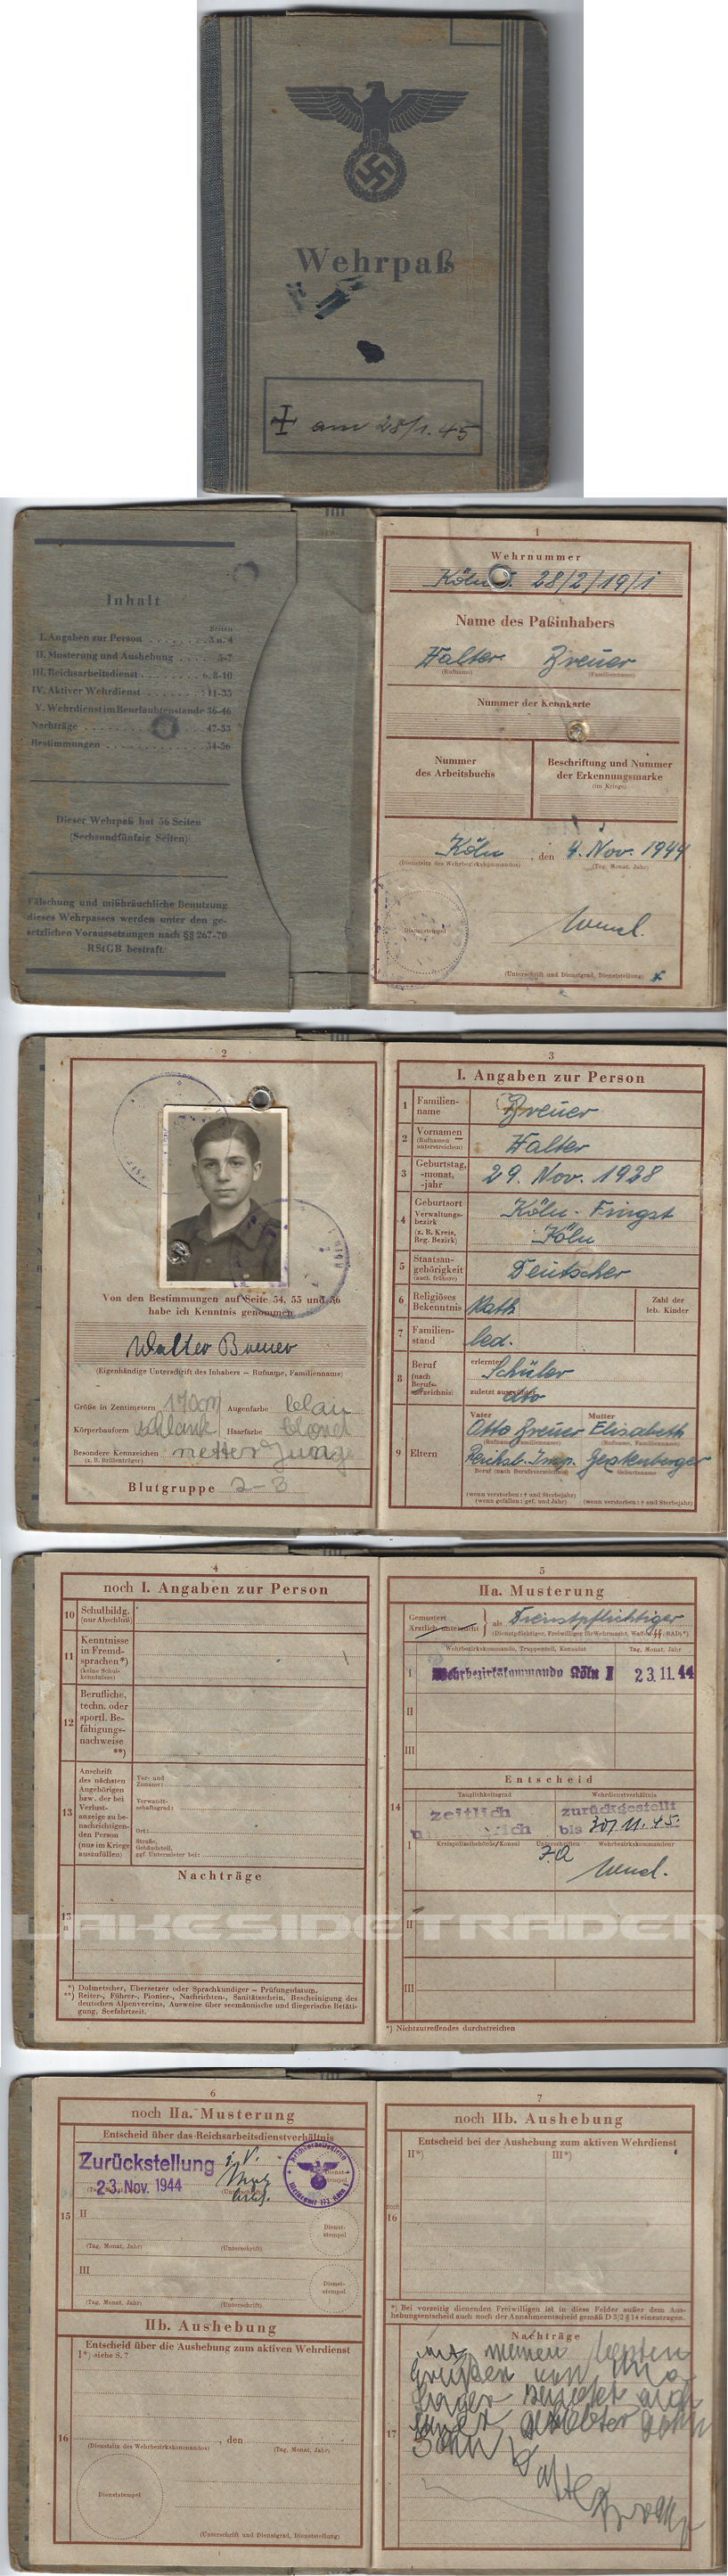 Wehrpaß
am 28/1.45
Inhalt
Seiten
I. Angaben zur Person . . . . . . . 3 u. 4
II. Musterung und Aushebung . . . . 5-7
III. Reichsarbeitsdienst . . . . . . . 6, 8-10
IV. Aktiver Wehrdienst . . . . . . . 11-35
V. Wehrdienst im Beurlaubtenstande 36-46
Nachträge . . . . . . . 47-53
Bestimmungen . . . . . . . 54-56
Dieser Wehrpaß hat 56 Seiten
(Sechsundfünfzig Seiten)
Fälschung und mißbräuchliche Benutzung
dieses Wehrpasses werden unter den ge-
setzlichen Voraussetzungen nach §§ 267-70
RStGB bestraft.
1
Wehrnummer
Köln 28/2/19/1
Name des Paßinhabers
Walter Breuer
(Rufname) (Familienname)
Nummer der Kennkarte
Nummer des Arbeitsbuchs
Beschriftung und Nummer der Erkennungsmarke
(im Kriege)
Köln, den 4. Nov. 1944
(Dienstsitz des Wehrbezirkskommandos) (Tag, Monat, Jahr)
Dienststempel
(Unterschrift und Dienstgrad, Dienststellung)
2
Von den Bestimmungen auf Seite 54, 55 und 56
habe ich Kenntnis genommen
Walter Breuer
(Eigenhändige Unterschrift des Inhabers — Rufname, Familienname)
Größe in Zentimetern 170cm Augenfarbe blau
Körperbauform schlank Haarfarbe blond
Besondere Kennzeichen netter Junge
(z. B. Brillenträger)
Blutgruppe
3
I. Angaben zur Person
1 Familien-name Breuer
2 Vornamen (Rufnamen unterstreichen) Walter
3 Geburtstag, -monat, -jahr 29. Nov. 1928
4 Geburtsort Verwaltungs-bezirk (z. B. Kreis, Reg. Bezirk) Köln
Köln
5 Staatsan-gehörigkeit (auch frühere) Deutscher
6 Religiöses Bekenntnis Kath
Zahl der leb. Kinder
7 Familien-stand led.
8 Beruf (nach Berufs-verzeichnis) erlernter Schüler
zuletzt ausgeübter dto
9 Eltern
Vater Mutter
Otto Breuer Elisabeth
(Rufname, Familienname) (Rufname, Familienname)
Reichsb. Insp. Gerstenberger
Beruf (nach Berufsverzeichnis) Geburtsname
(wenn verstorben: † und Sterbejahr)
(wenn gefallen: gef. und Jahr) (wenn verstorben: † und Sterbejahr)
4
noch I. Angaben zur Person
10 Schulbildg. (nur Abschluß)
11 Kenntnisse in Fremd-sprachen*) (keine Schul-kenntnisse)
12 Berufliche, techn. oder sportl. Be-fähigungs-nachweise **)
13 Anschrift des nächsten Angehörigen bzw. der bei Verlust-anzeige zu be-nachrichtigen-den Person (nur im Kriege auszufüllen)
Vor- und Zuname:
Verwandt-schaftsgrad:
Ort:
Straße, Gebäudeteil, ggf. Untermieter bei:
Nachträge
13 a
*) Dolmetscher, Übersetzer oder Sprachkundiger — Prüfungsdatum.
**) Reiter-, Führer-, Pionier-, Nachrichten-, Sanitätsschein, Bescheinigung des
deutschen Alpenvereins, Ausweise über seemännische und fliegerische Betäti-
gung, Seefahrtzeit.
5
IIa. Musterung
Gemustert
Ärztlich untersucht
als Dienstpflichtiger
(Dienstpflichtiger, Freiwilliger für Wehrmacht, Waffen-SS, RAD*)
Wehrbezirkskommando, Truppenteil, Konsulat Tag, Monat, Jahr
I Wehrbezirkskommando Köln I 23.11.44
II
III
Entscheid
14
Tauglichkeitsgrad Wehrdienstverhältnis
zeitlich
zurückgestellt
bis 30/11.45.
I
Kreispolizeibehörde/Konsul Unterschriften Wehrbezirkskommandeur
II
III
*) Nichtzutreffendes durchstreichen
LAKESIDETRADER
6
noch IIa. Musterung
Entscheid über das Reichsarbeitsdienstverhältnis
Zurückstellung
23. Nov. 1944
i. V.
(Tag, Monat, Jahr) (Unterschrift)
15
II
Dienst-stempel
(Tag, Monat, Jahr) (Unterschrift)
III
Dienst-stempel
(Tag, Monat, Jahr) (Unterschrift)
IIb. Aushebung
Entscheid über die Aushebung zum aktiven Wehrdienst
I*) siehe S. 7
16
, den
(Dienstsitz des Wehrbezirkskommandos) (Tag, Monat, Jahr)
Dienststempel
(Unterschrift und Dienstgrad, Dienststellung)
7
noch IIb. Aushebung
Entscheid bei der Aushebung zum aktiven Wehrdienst
II*) III*)
noch 16
*) Bei vorzeitig dienenden Freiwilligen ist in diese Felder außer dem Aus-
hebungsentscheid auch noch der Annahmeentscheid gemäß D 3/2 § 14 einzutragen.
Nachträge
17
mit meinen besten
Grüßen
Sohn